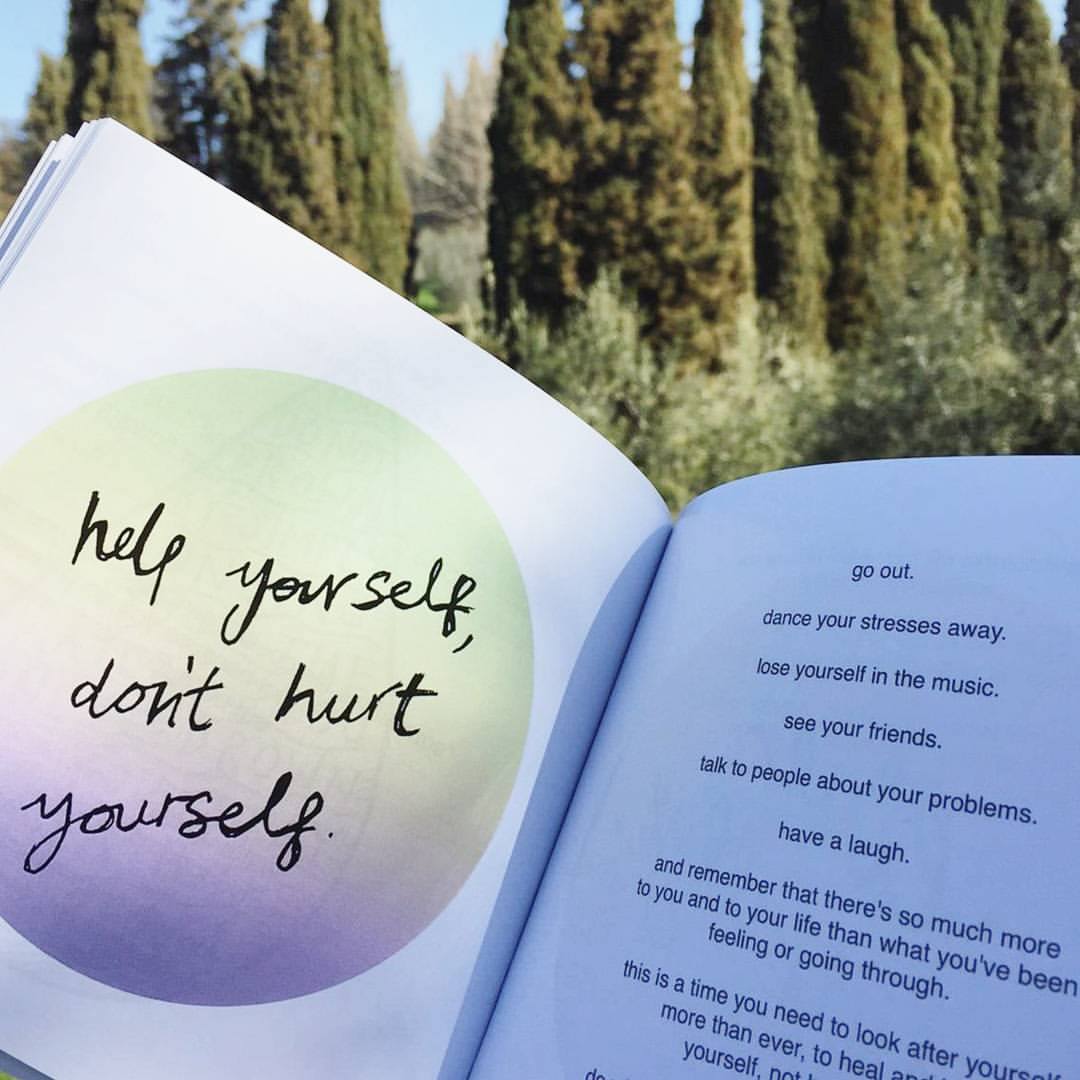 help yourself,
don't hurt
yourself.
go out.
dance your stresses away.
lose yourself in the music.
see your friends.
talk to people about your problems.
have a laugh.
and remember that there's so much more
to you and to your life than what you've been
feeling or going through.
this is a time you need to look after yourself
more than ever, to heal and
yourself, not